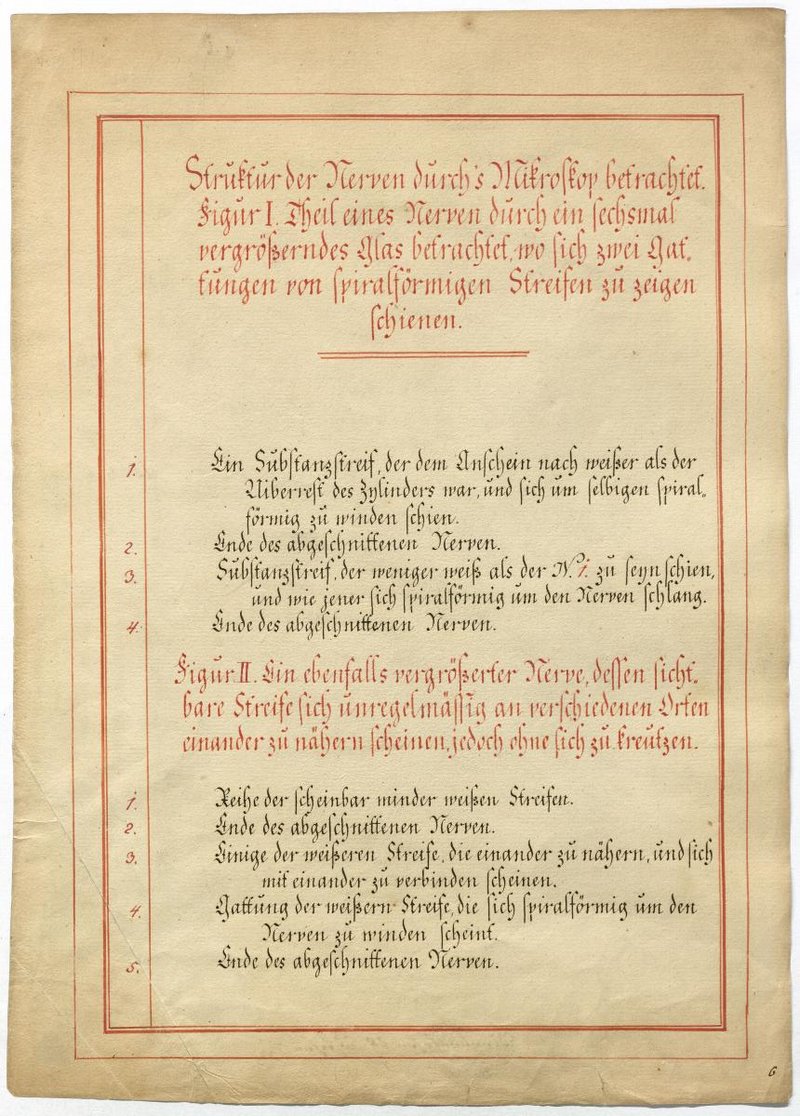 Struktur der Nerven durch's Mikroskop betrachtet.
Figur I. Theil eines Nerven durch ein sechsmal
vergrößerndes Glas betrachtet, wo sich zwei Gat-
tungen von spiralförmigen Streifen zu zeigen
schienen.
1. Ein Substanzstreif, der dem Anschein nach weißer als der
Uiberrest des Zylinders war, und sich um selbigen spiral-
förmig zu winden schien.
2. Ende des abgeschnittenen Nerven.
3. Substanzstreif, der weniger weiß als der N. 1. zu seyn schien,
und wie jener sich spiralförmig um den Nerven schlang.
4. Ende des abgeschnittenen Nerven.
Figur II. Ein ebenfalls vergrößerter Nerve, dessen sicht-
bare Streife sich unregelmässig an verschiedenen Orten
einander zu nähern scheinen, jedoch ohne sich zu kreutzen.
1. Reihe der scheinbar minder weißen Streifen.
2. Ende des abgeschnittenen Nerven.
3. Einige der weißeren Streife, die einander zu nähern, und sich
mit einander zu verbinden scheinen.
4. Gattung der weißern Streife, die sich spiralförmig um den
Nerven zu winden scheint.
5. Ende des abgeschnittenen Nerven.
6